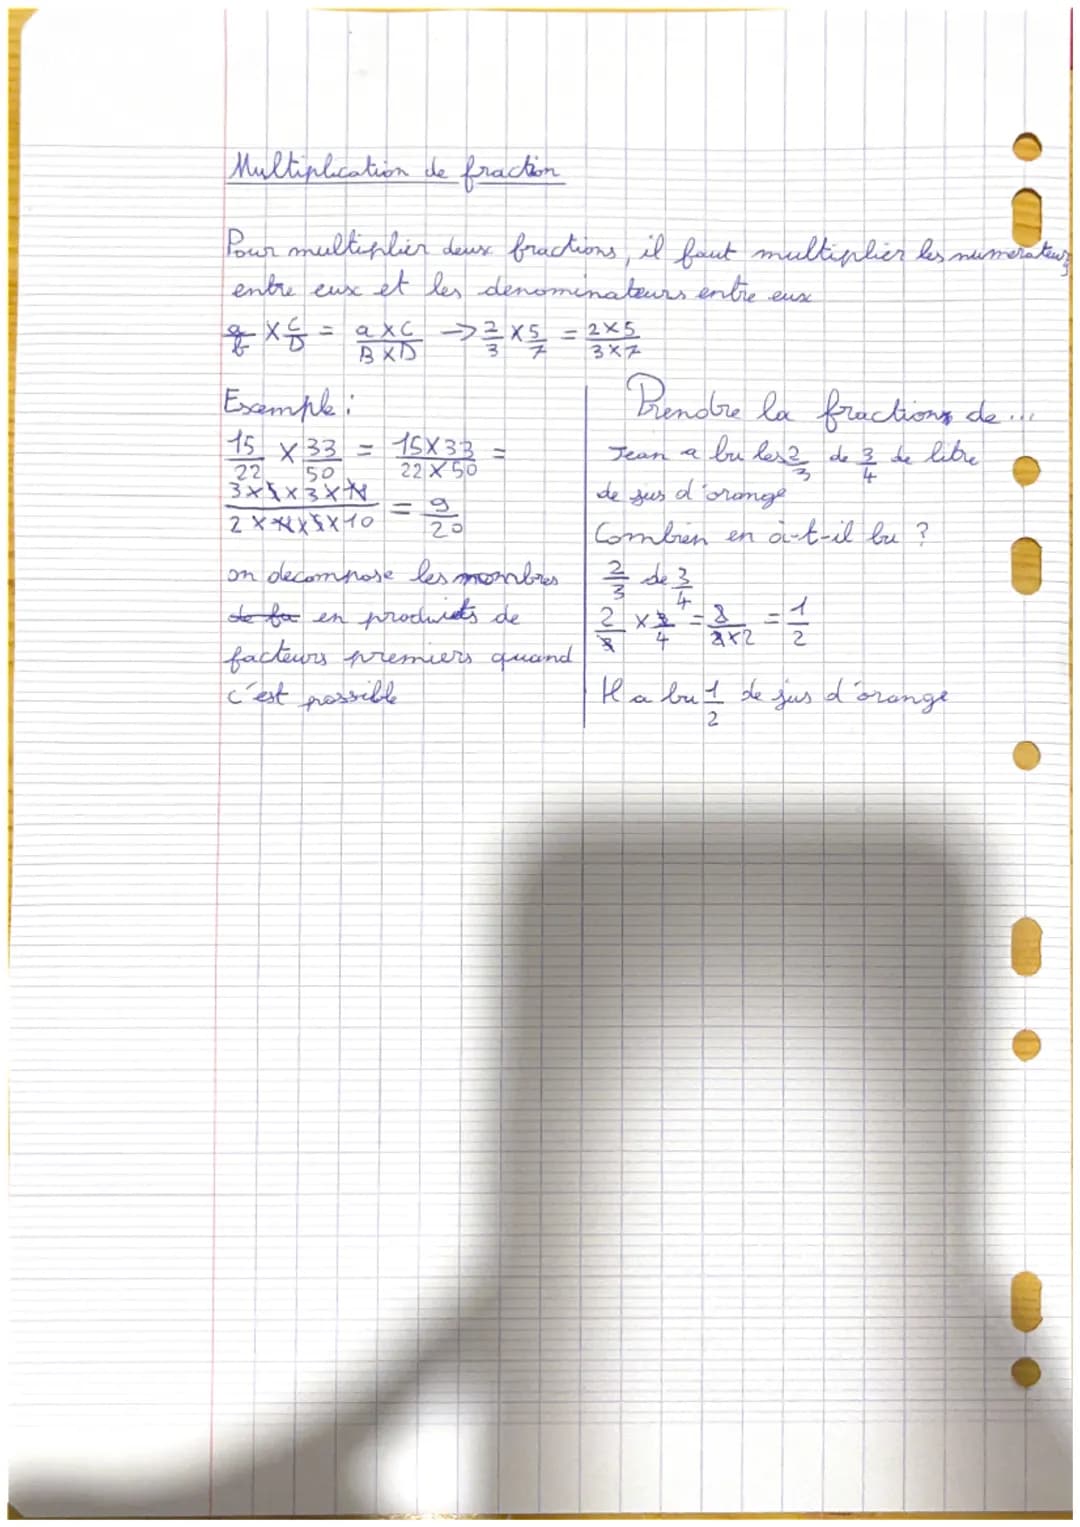 Multiplication de fraction
Pour multiplier deux fractions, il faut multiplier les numerateurs
entre eux et les denominateurs entre eux
a/b × C/D = a×C/B×D → 2/3 × 5/7 = 2×5/3×7
Exemple :
15/22 × 33/50 = 15×33/22×50 =
3×5×3×11/2×11×5×10 = 9/20
on decompose les nombres
de fa en produits de
facteurs premiers quand
c'est possible
Prendre la fractions de ...
Jean a bu les 2/3 de 3/4 de litre
de jus d'orange
Combien en à-t-il bu ?
2/3 de 3/4
2/3 × 3/4 = 2/2×2 = 1/2
Il a bu 1/2 de jus d'orange